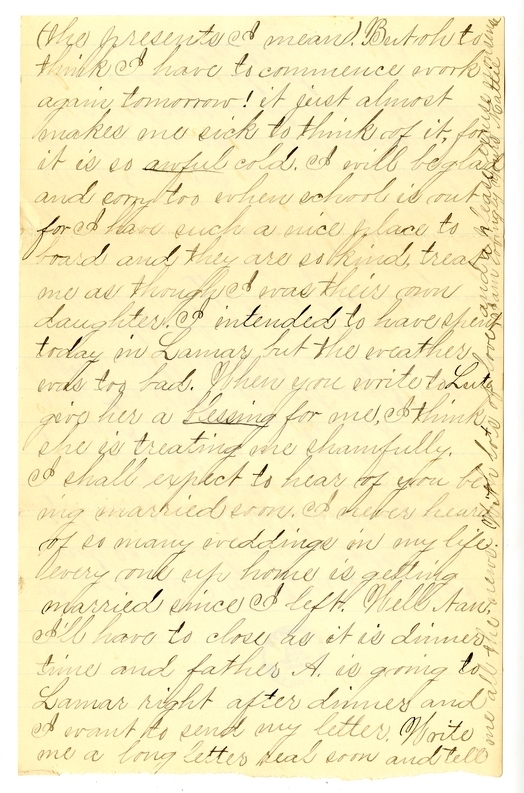 (the presents I mean). But oh to
think I have to commence work
again tomorrow! it just almost
makes me sick to think of it, for
it is so awful cold. I will be glad
and sorry too when school is out
for I have such a nice place to
board and they are so kind, treat
me as though I was their own
daughter. I intended to have spent
today in Lamar but the weather
was too bad. When you write to Lute
give her a blessing for me, I think
she is treating me shamfully.
I shall expect to hear of you be
ing married soon. I never heard
of so many weddings in my life.
every one up home is getting
married since I left. Well Nan.
I'll have to close as it is dinner
time and father A. is going to
Lamar right after dinner and
I want to send my letter. Write
me a long letter real soon and tell
me all the news. With lots of love and a kiss